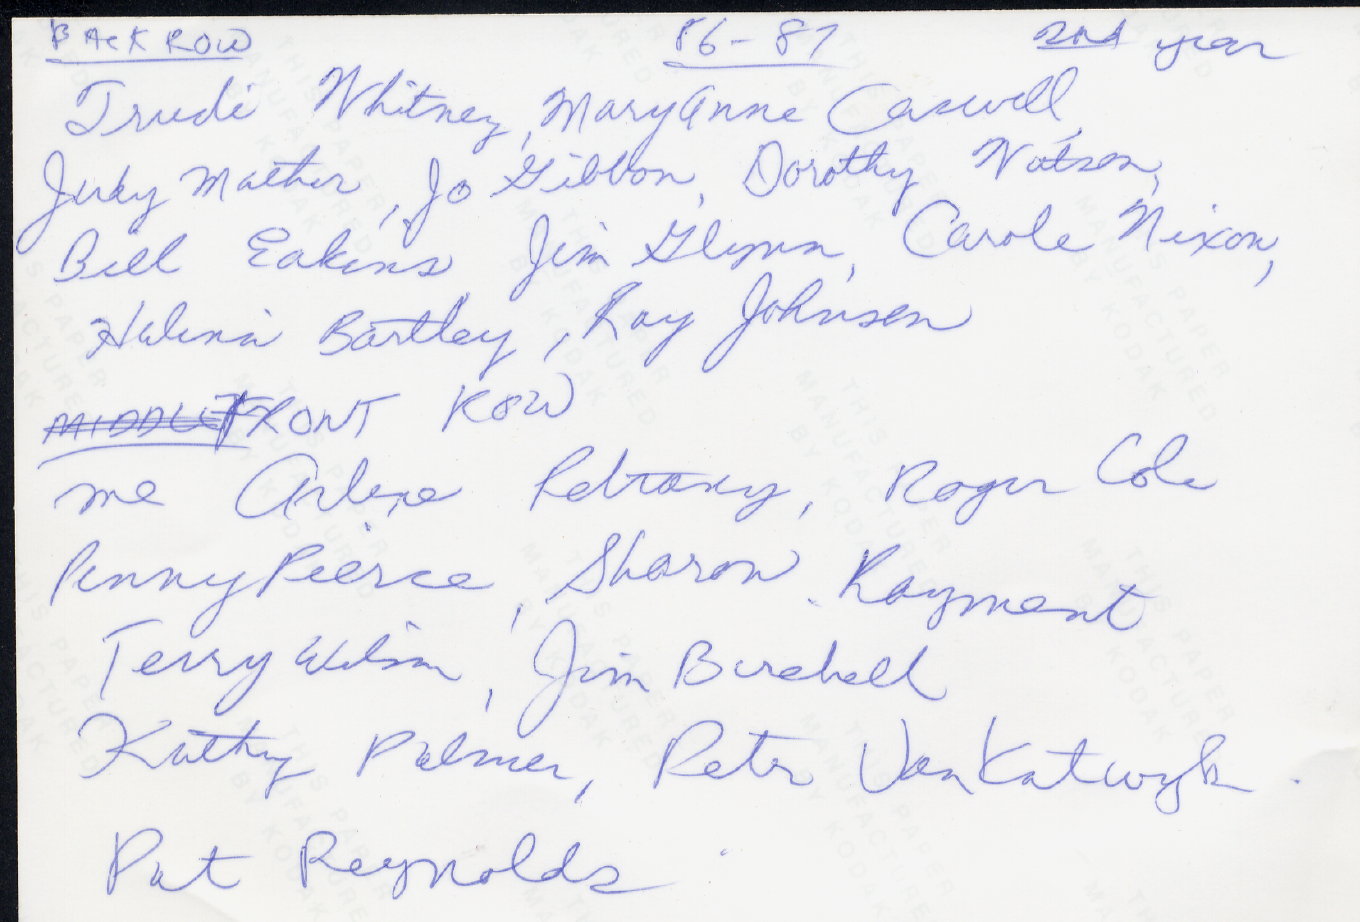 BACK ROW 86-87 2nd year
Trudi Whitney, MaryAnne Caswell,
Judy Mather, Jo Gibbon, Dorothy Watson,
Bill Eakins Jim Glynn, Carole Nixon,
Helena Bartley, Ray Johnsen
MIDDLE FRONT ROW
me Arlene, Roger Cole
Penny Pierce, Sharon Rayment
Terry Wilson, Jim Burchell
Kathy Palmer, Peter VanKatwyk.
Pat Reynolds
THIS PAPER
MANUFACTURED
BY KODAK